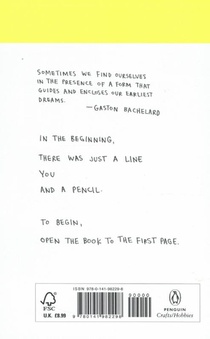 SOMETIMES WE FIND OURSELVES
IN THE PRESENCE OF A FORM THAT
GUIDES AND ENCLOSES OUR EARLIEST
DREAMS.
—GASTON BACHELARD
IN THE BEGINNING,
THERE WAS JUST A LINE
YOU
AND A PENCIL.
TO BEGIN,
OPEN THE BOOK TO THE FIRST PAGE.
FSC
U.K. £8.99
ISBN 978-0-141-98229-8
90000
9 780141 982298
PENGUIN
Crafts/Hobbies